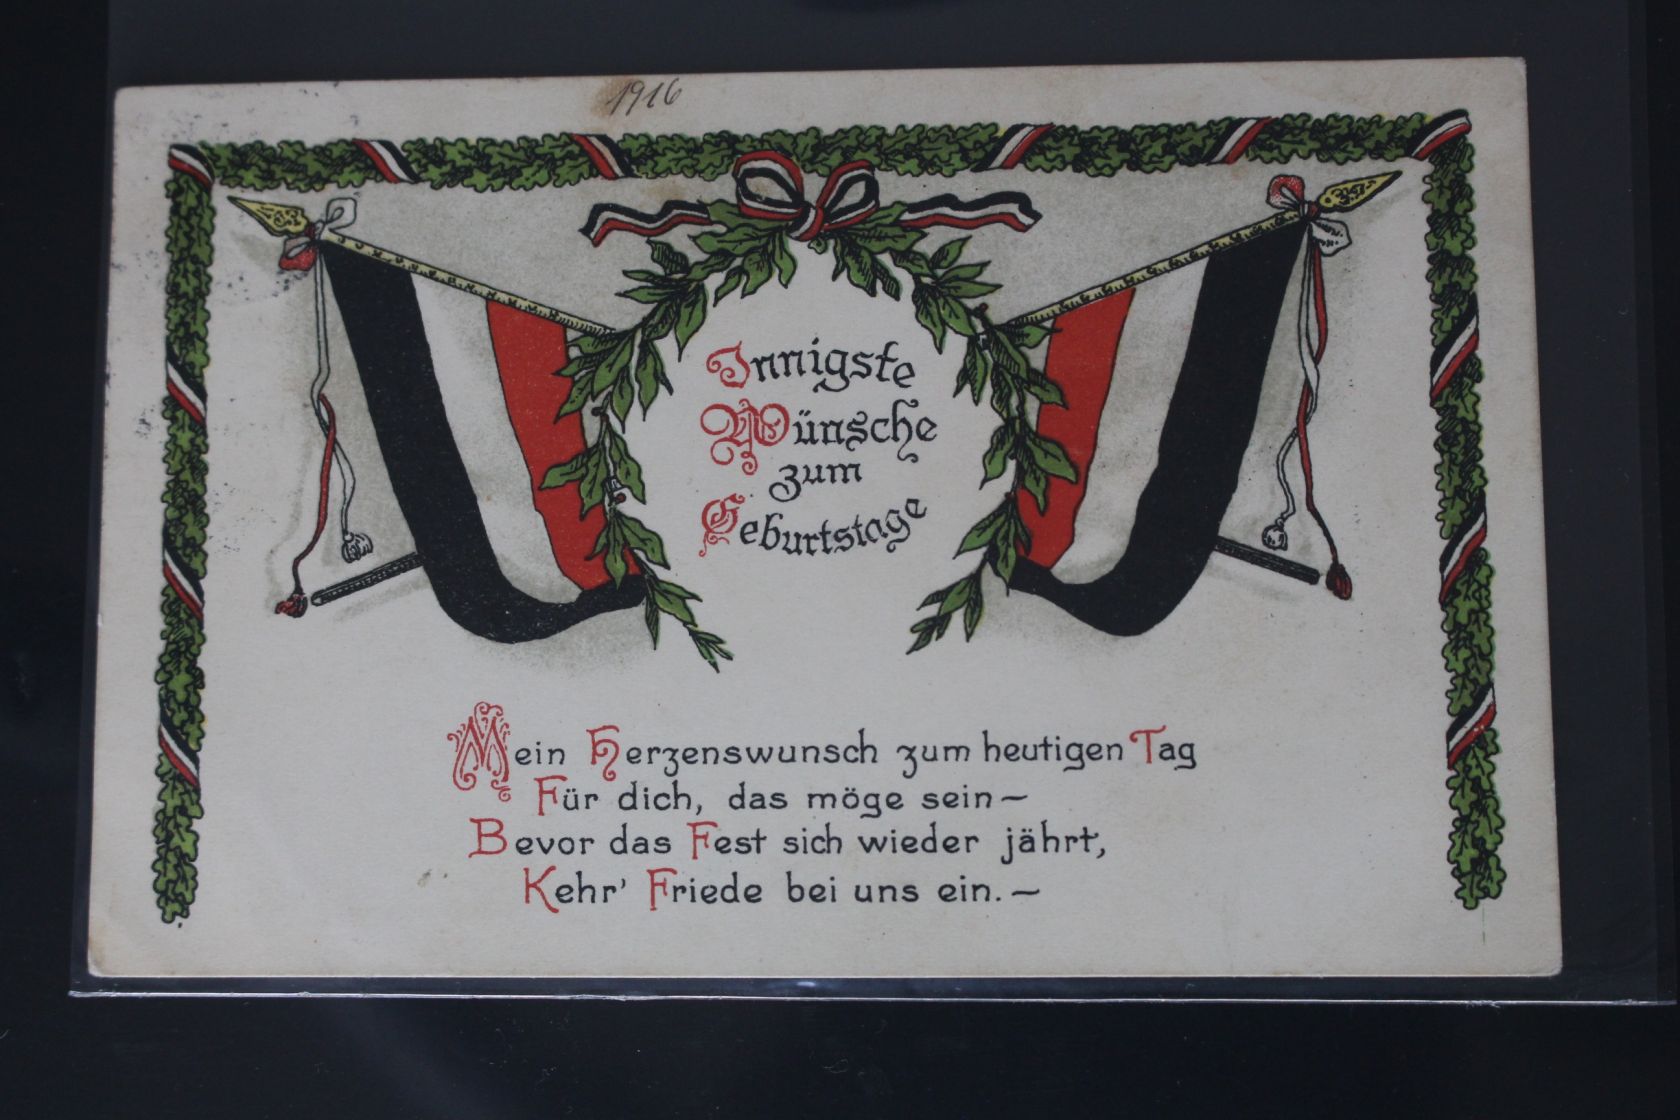 1916
Innigste
Wünsche
zum
Geburtstage
Mein Herzenswunsch zum heutigen Tag
Für dich, das möge sein –
Bevor das Fest sich wieder jährt,
Kehr' Friede bei uns ein. –